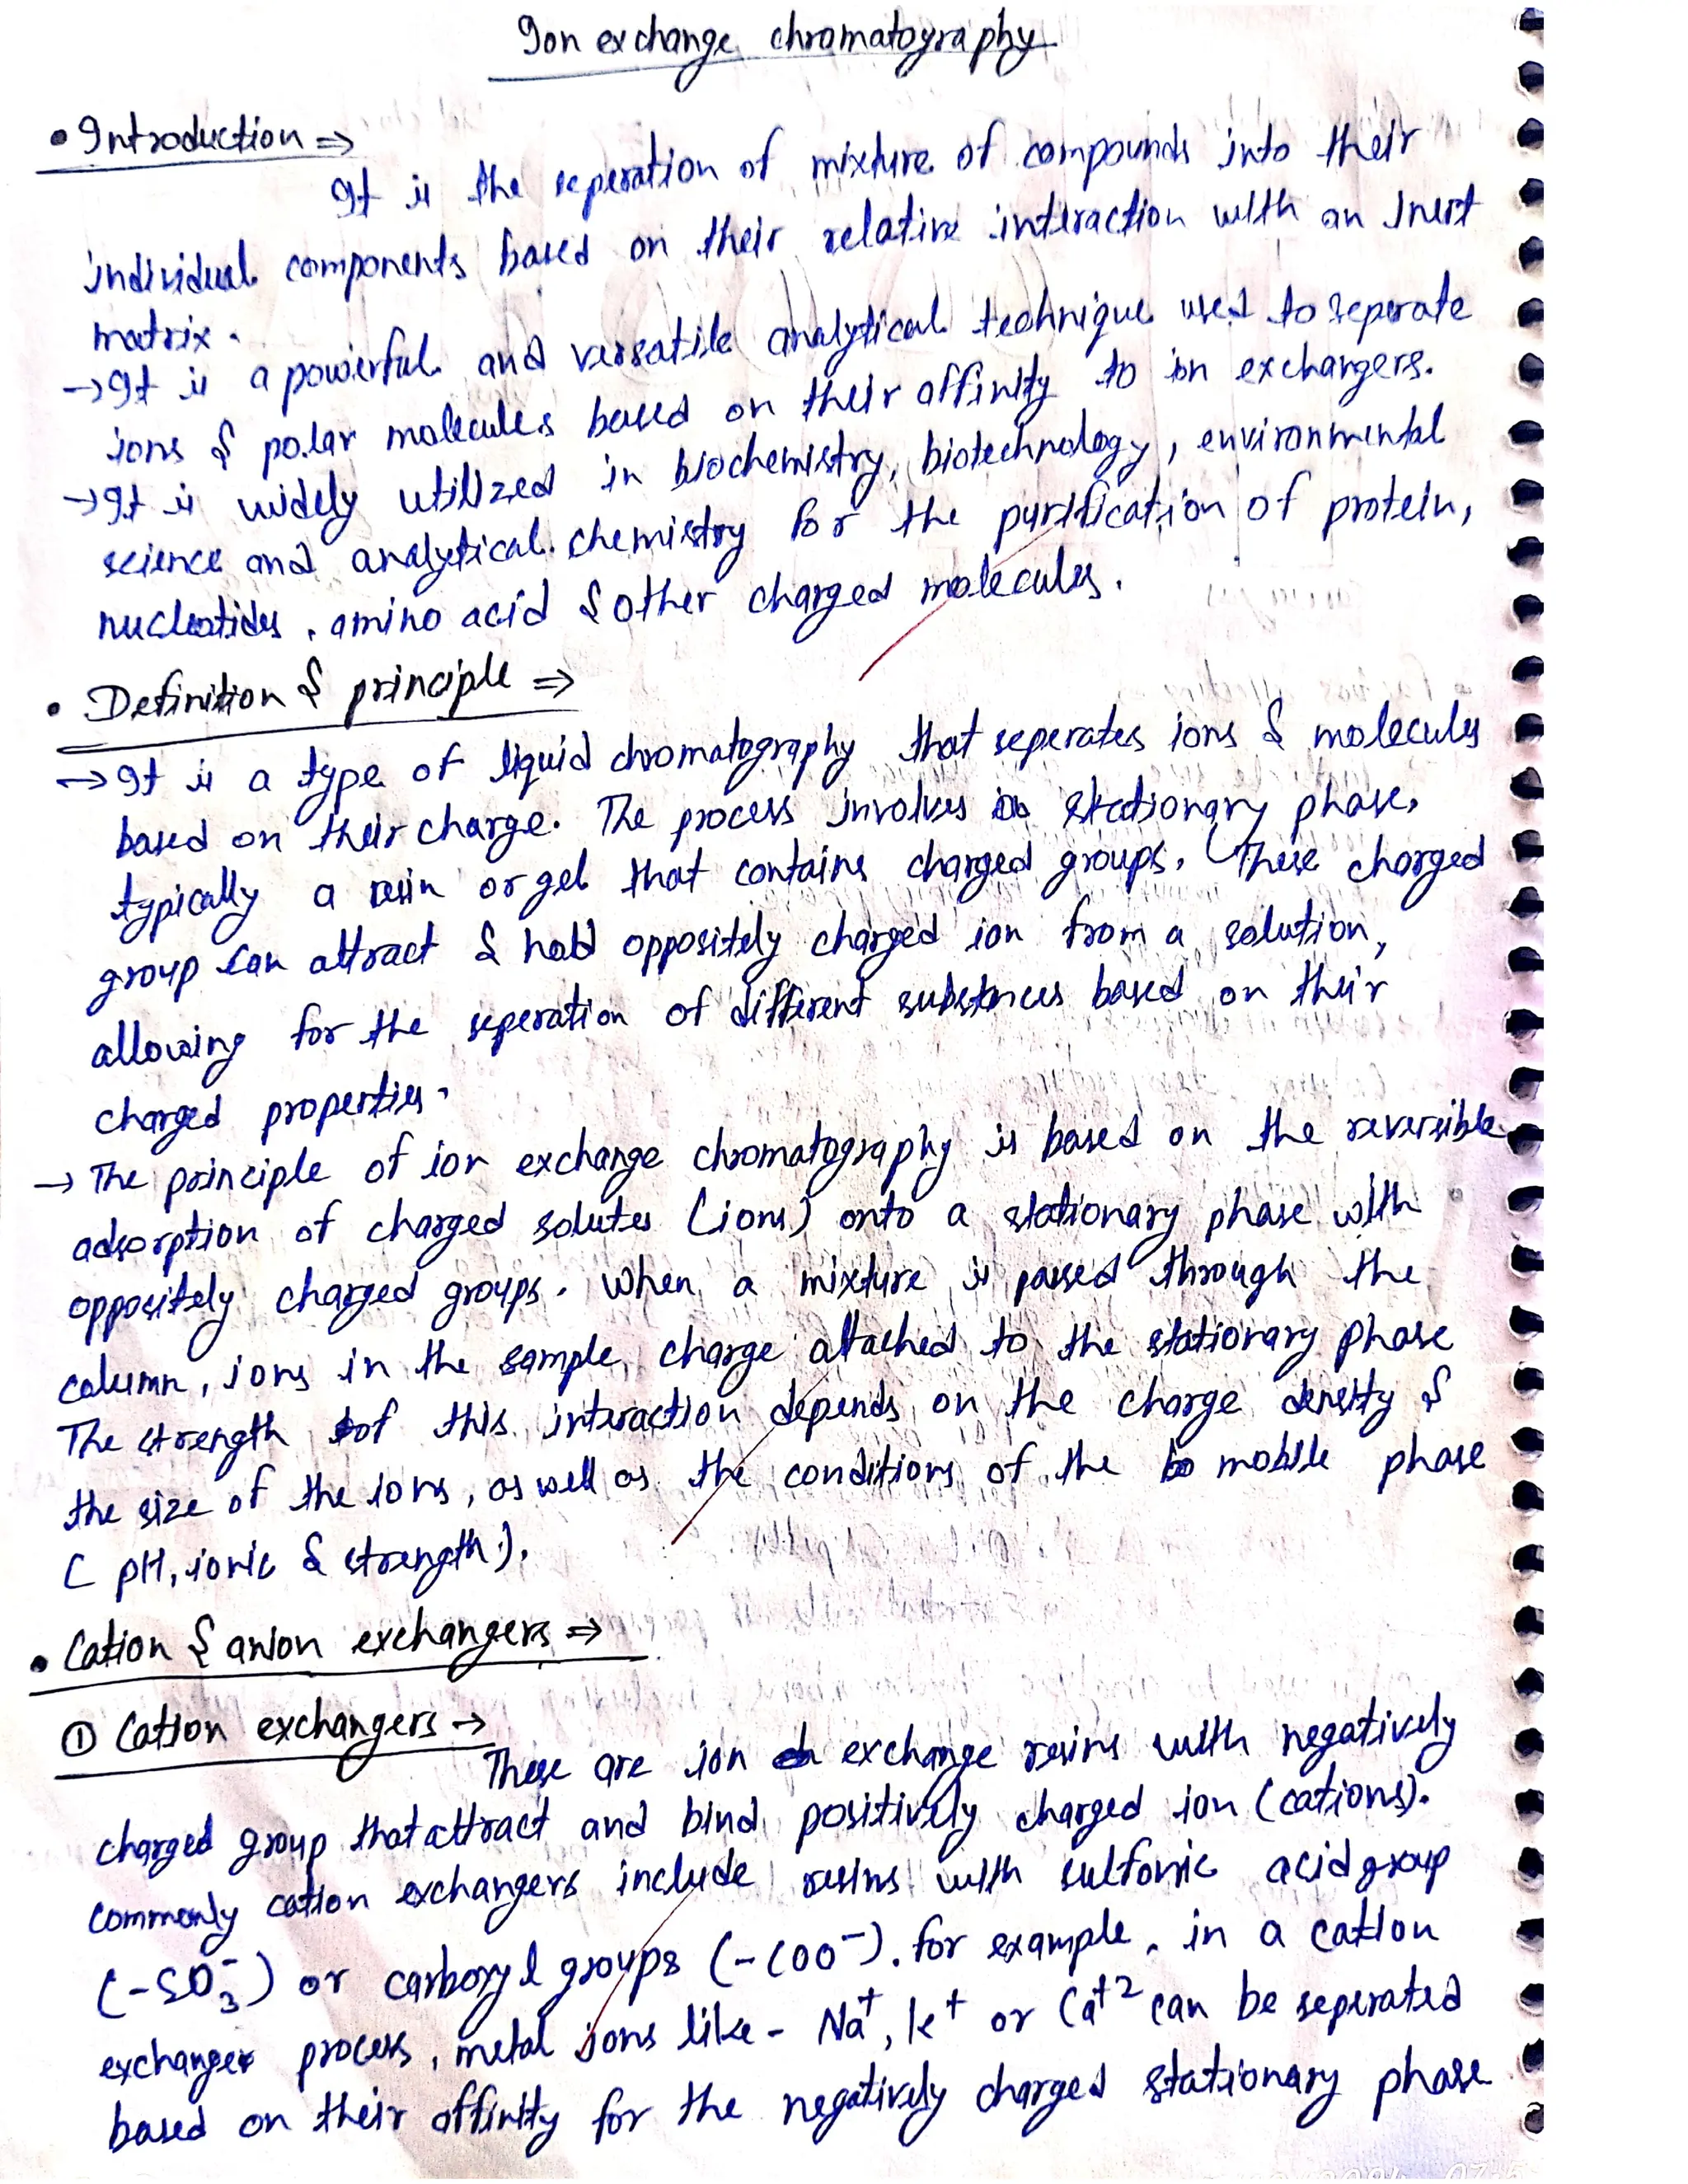 Ion exchange chromatography
• Introduction ⇒
It is the seperation of mixture of compounds into their
individual components based on their relative interaction with an inert
matrix.
→ It is a powerful and versatile analytical technique used to seperate
ions & polar molecules based on their affinity to ion exchangers.
→ It is widely utilized in biochemistry, biotechnology, environmental
science and analytical chemistry for the purification of protein,
nucleotides, amino acid & other charged molecules.
• Definition & principle ⇒
→ It is a type of liquid chromatography that seperates ions & molecules
based on their charge. The process involves stationary phase,
typically a resin or gel that contains charged groups. These charged
group can attract & hold oppositely charged ion from a solution,
allowing for the seperation of different substances based on their
charged properties.
→ The principle of ion exchange chromatography is based on the reversible
adsorption of charged solutes (ions) onto a stationary phase with
oppositely charged groups. When a mixture is passed through the
column, ions in the sample charge attached to the stationary phase
The strength of this interaction depends on the charge density &
the size of the ions, as well as the conditions of the mobile phase
( pH, ionic & strength ).
• Cation & anion exchangers ⇒
① Cation exchangers →
These are ion exchange resins with negatively
charged group that attract and bind positively charged ion (cations).
commonly cation exchangers include resins with sulfonic acid group
(-SO₃⁻) or carboxyl groups (-COO⁻). for example, in a cation
exchanger process, metal ions like - Na⁺, K⁺ or Ca⁺² can be seperated
based on their affinity for the negatively charged stationary phase